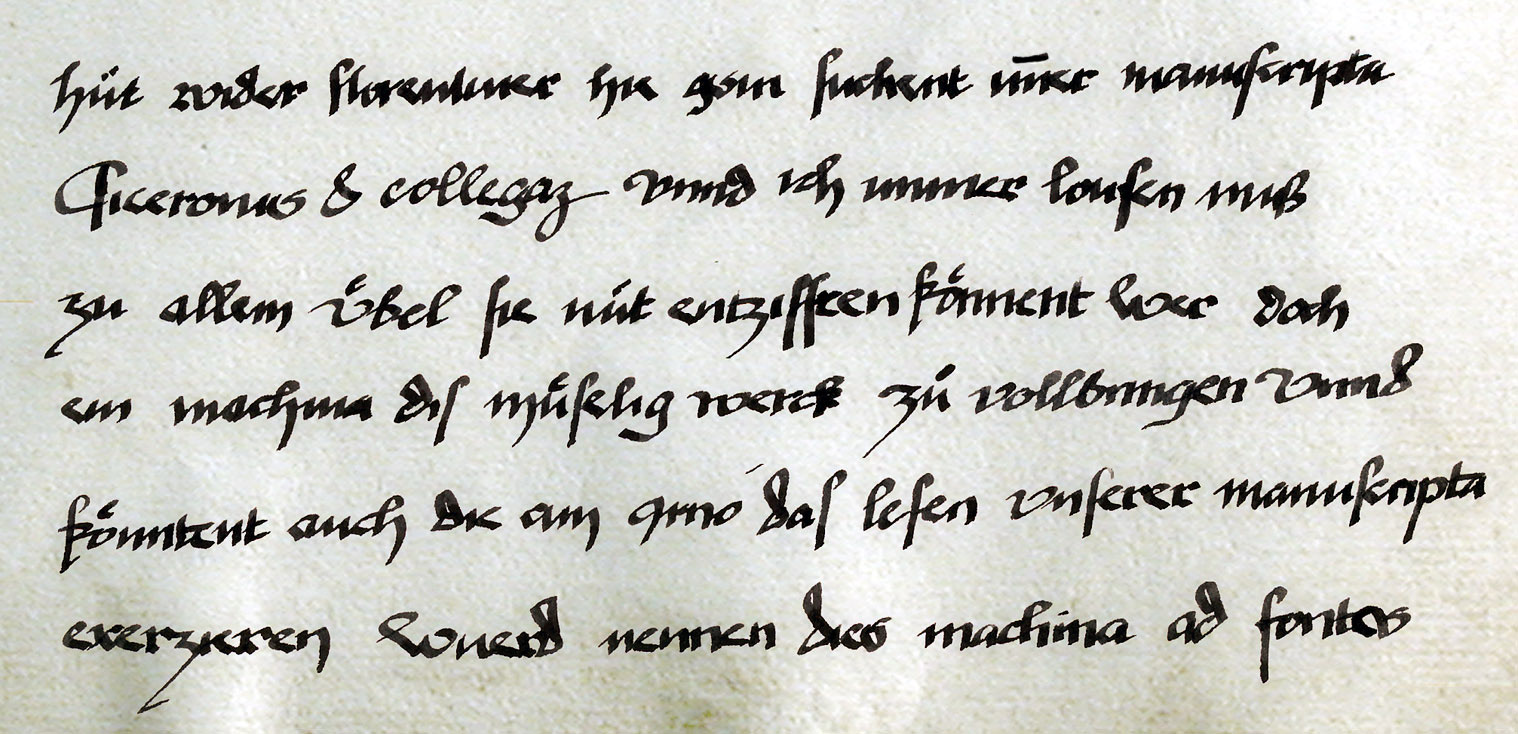 hüt wider florentiner hie gsin suchent im̄er manuscripta
Ciceronis & collegaz vnnd ich immer loufen mus
zu allem vͤbel sie nüt entziffren koͤnnent wer doch
ein machina dis muͤselig werck zů vollbringen vnnd
koͤnntent auch die am arno das lesen vnserer manuscripta
exerzieren wuerd nennen dies machina ad fontes